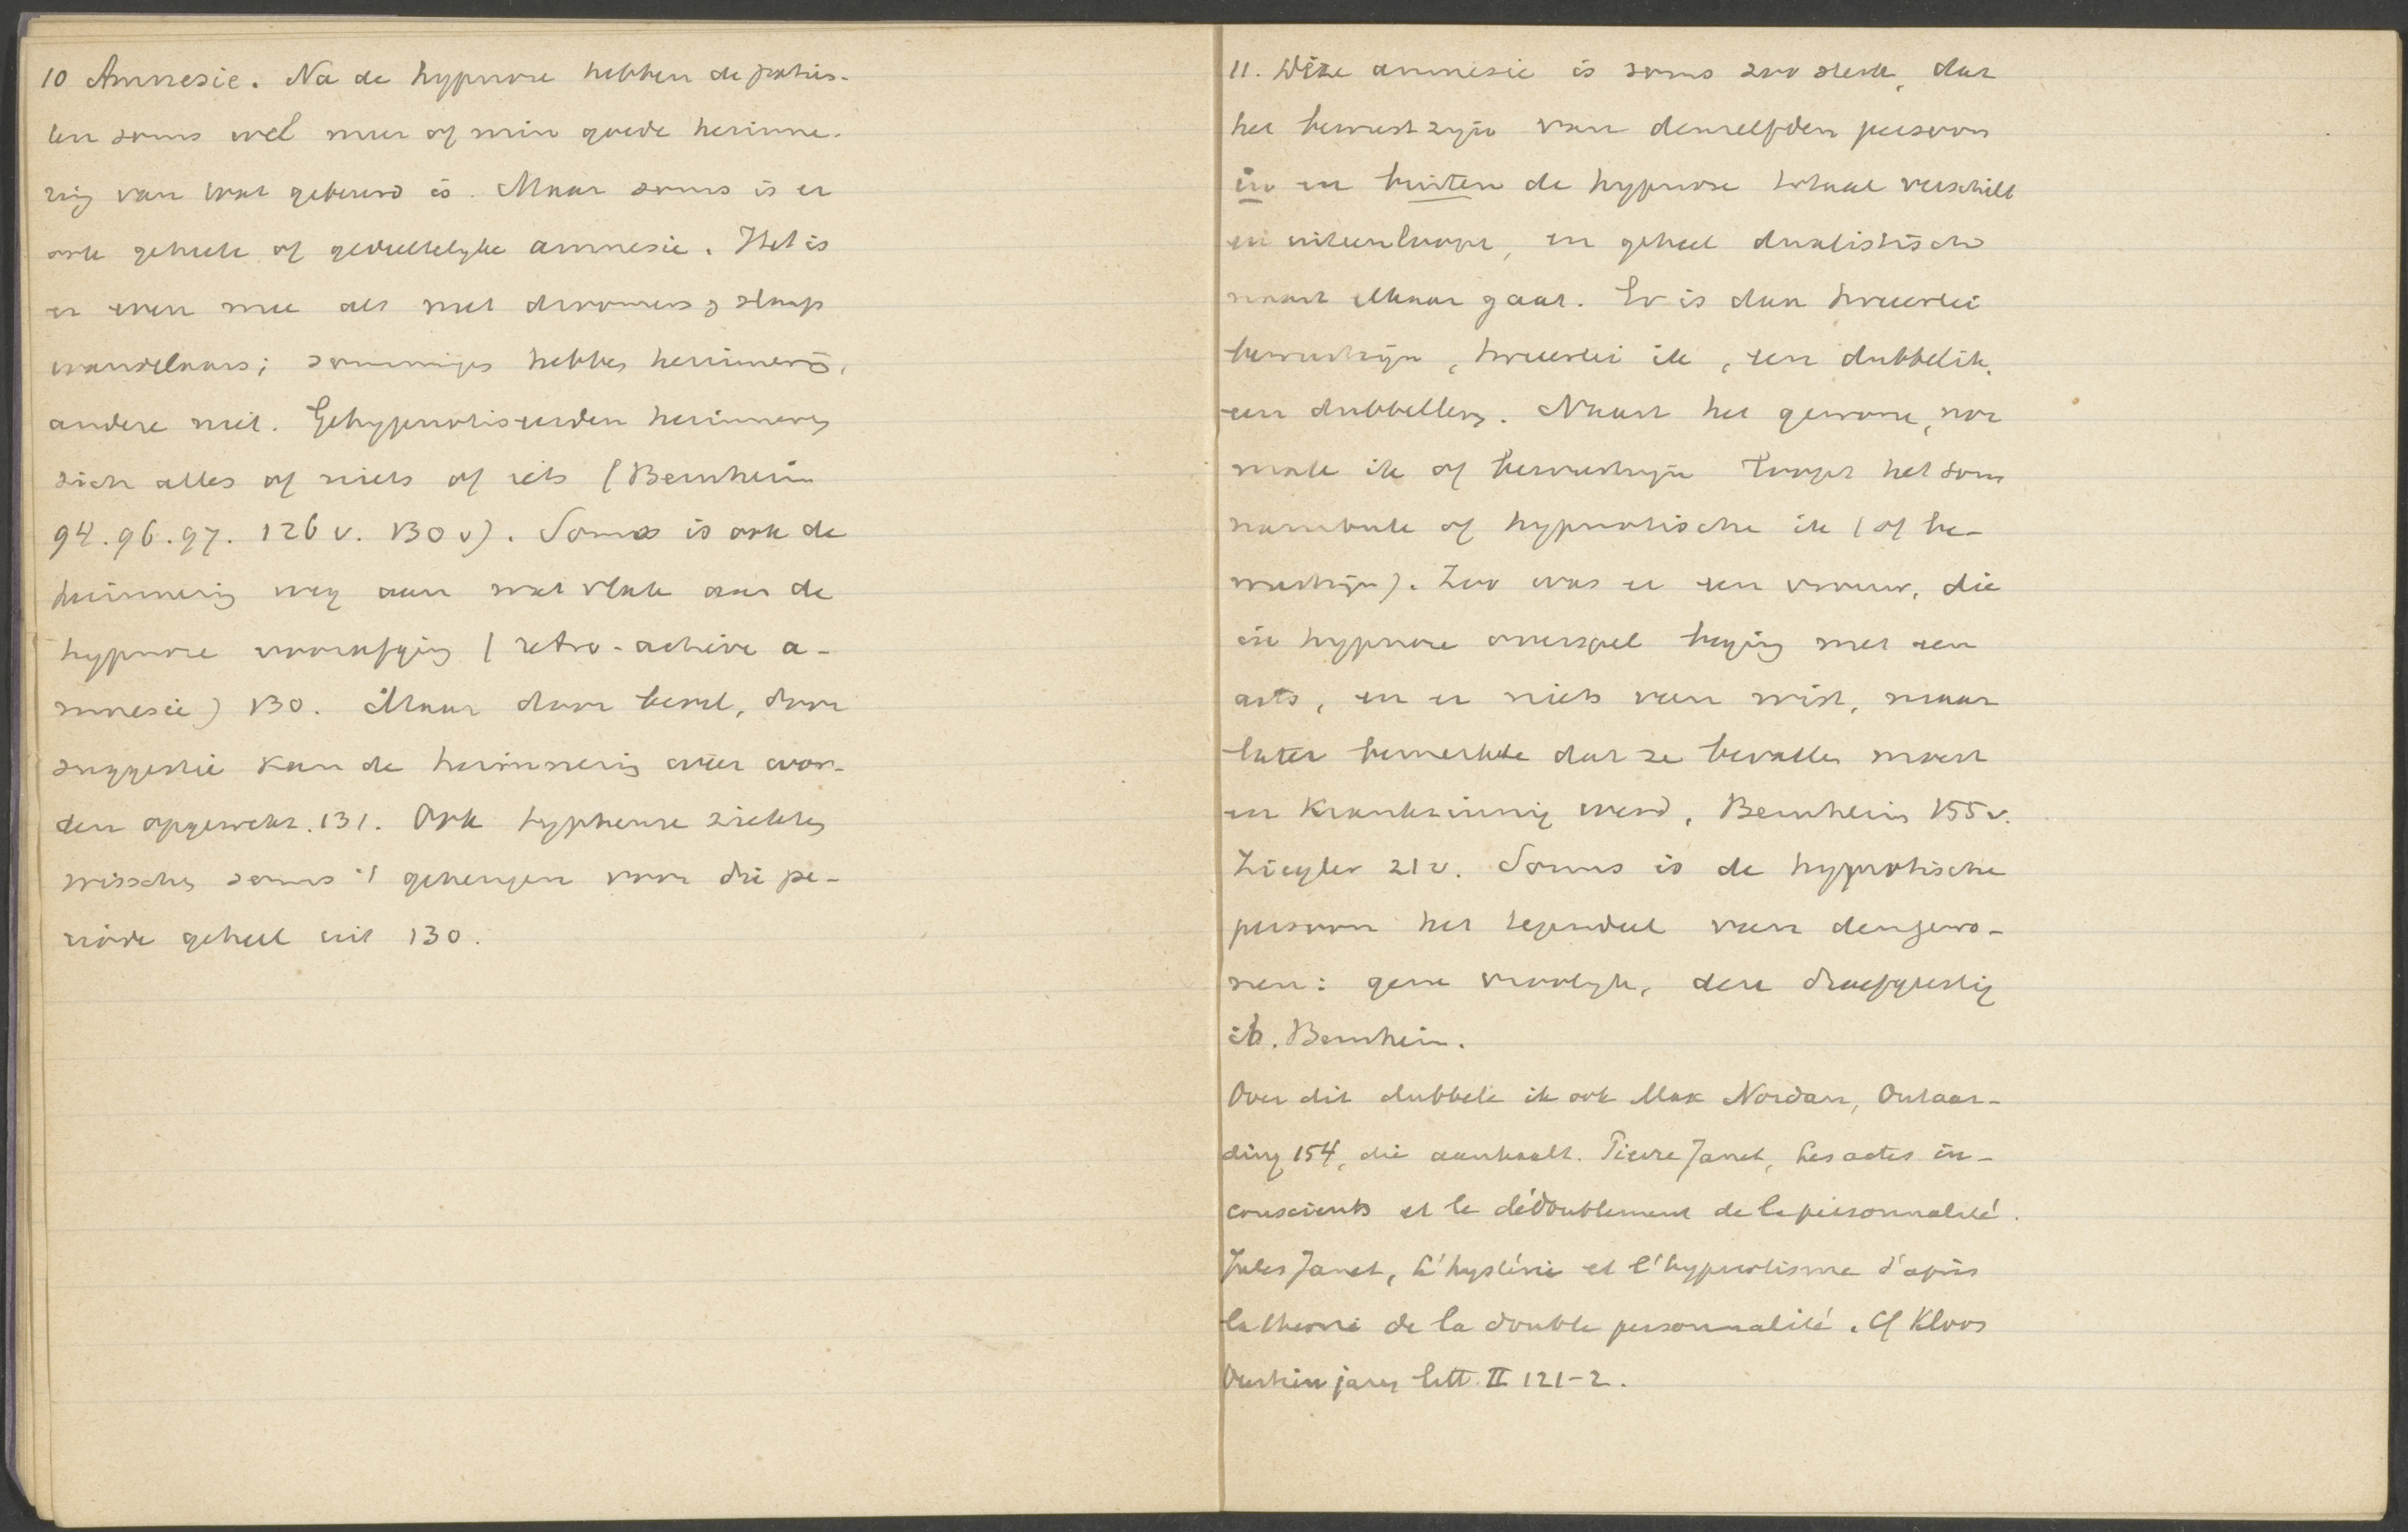 10 Amnesie. Na de hypnose hebben de patiën-
ten soms wel meer of min goede herinne-
ring van wat gebeurd is. Maar soms is er
ook geheele of gedeeltelyke amnesie. Het is
er even mee als met droomen & slaap
wandelaars; sommigen hebben herinnering,
andere niet. Gehypnotiseerden herinneren
zich alles of niets of iets (Bernheim
94. 96. 97. 126 v. 130 v). Soms is ook de
herinnering weg aan wat vlak aan de
hypnose voorafging (retro-actieve a-
mnesie) 130. Maar door bevel, door
suggestie kan de herinnering weer wor-
den opgewekt. 131. Ook typheuse ziekten
wisschen soms 't geheugen voor die pe-
riode geheel uit 130.
11. Deze amnesie is soms zoo sterk, dat
het bewustzyn van denzelfden persoon
in en buiten de hypnose totaal verschilt
en uiteenloopt, en geheel dualistisch
naast elkaar gaat. Er is dan tweeerlei
bewustzijn, tweeerlei ik, een dubbelik,
een dubbelleven. Naast het gewone, nor
male ik of bewustzijn loopt het som
nambule of hypnotische ik (of be-
wustzijn). Zoo was er een vrouw, die
in hypnose overspel beging met een
arts, en er niets van wist, maar
later bemerkte dat ze bevallen moest
en krankzinnig werd, Bernheim 155 v.
Ziegler 21 v. Soms is de hypnotische
persoon het tegendeel van den gewo-
nen: gene vroolyk, deze droefgeestig
ib. Bernheim.
Over dit dubbele ik ook Max Nordau, Ontaar-
ding 154, die aanhaalt. Pierre Janet, Les actes in-
conscients et le dédoublement de la personnalité.
Jules Janet, L'hystérie et l'hypnotisme d'après
la théorie de la double personnalité. Cf Kloos
Veertien jaren litt. II 121-2.